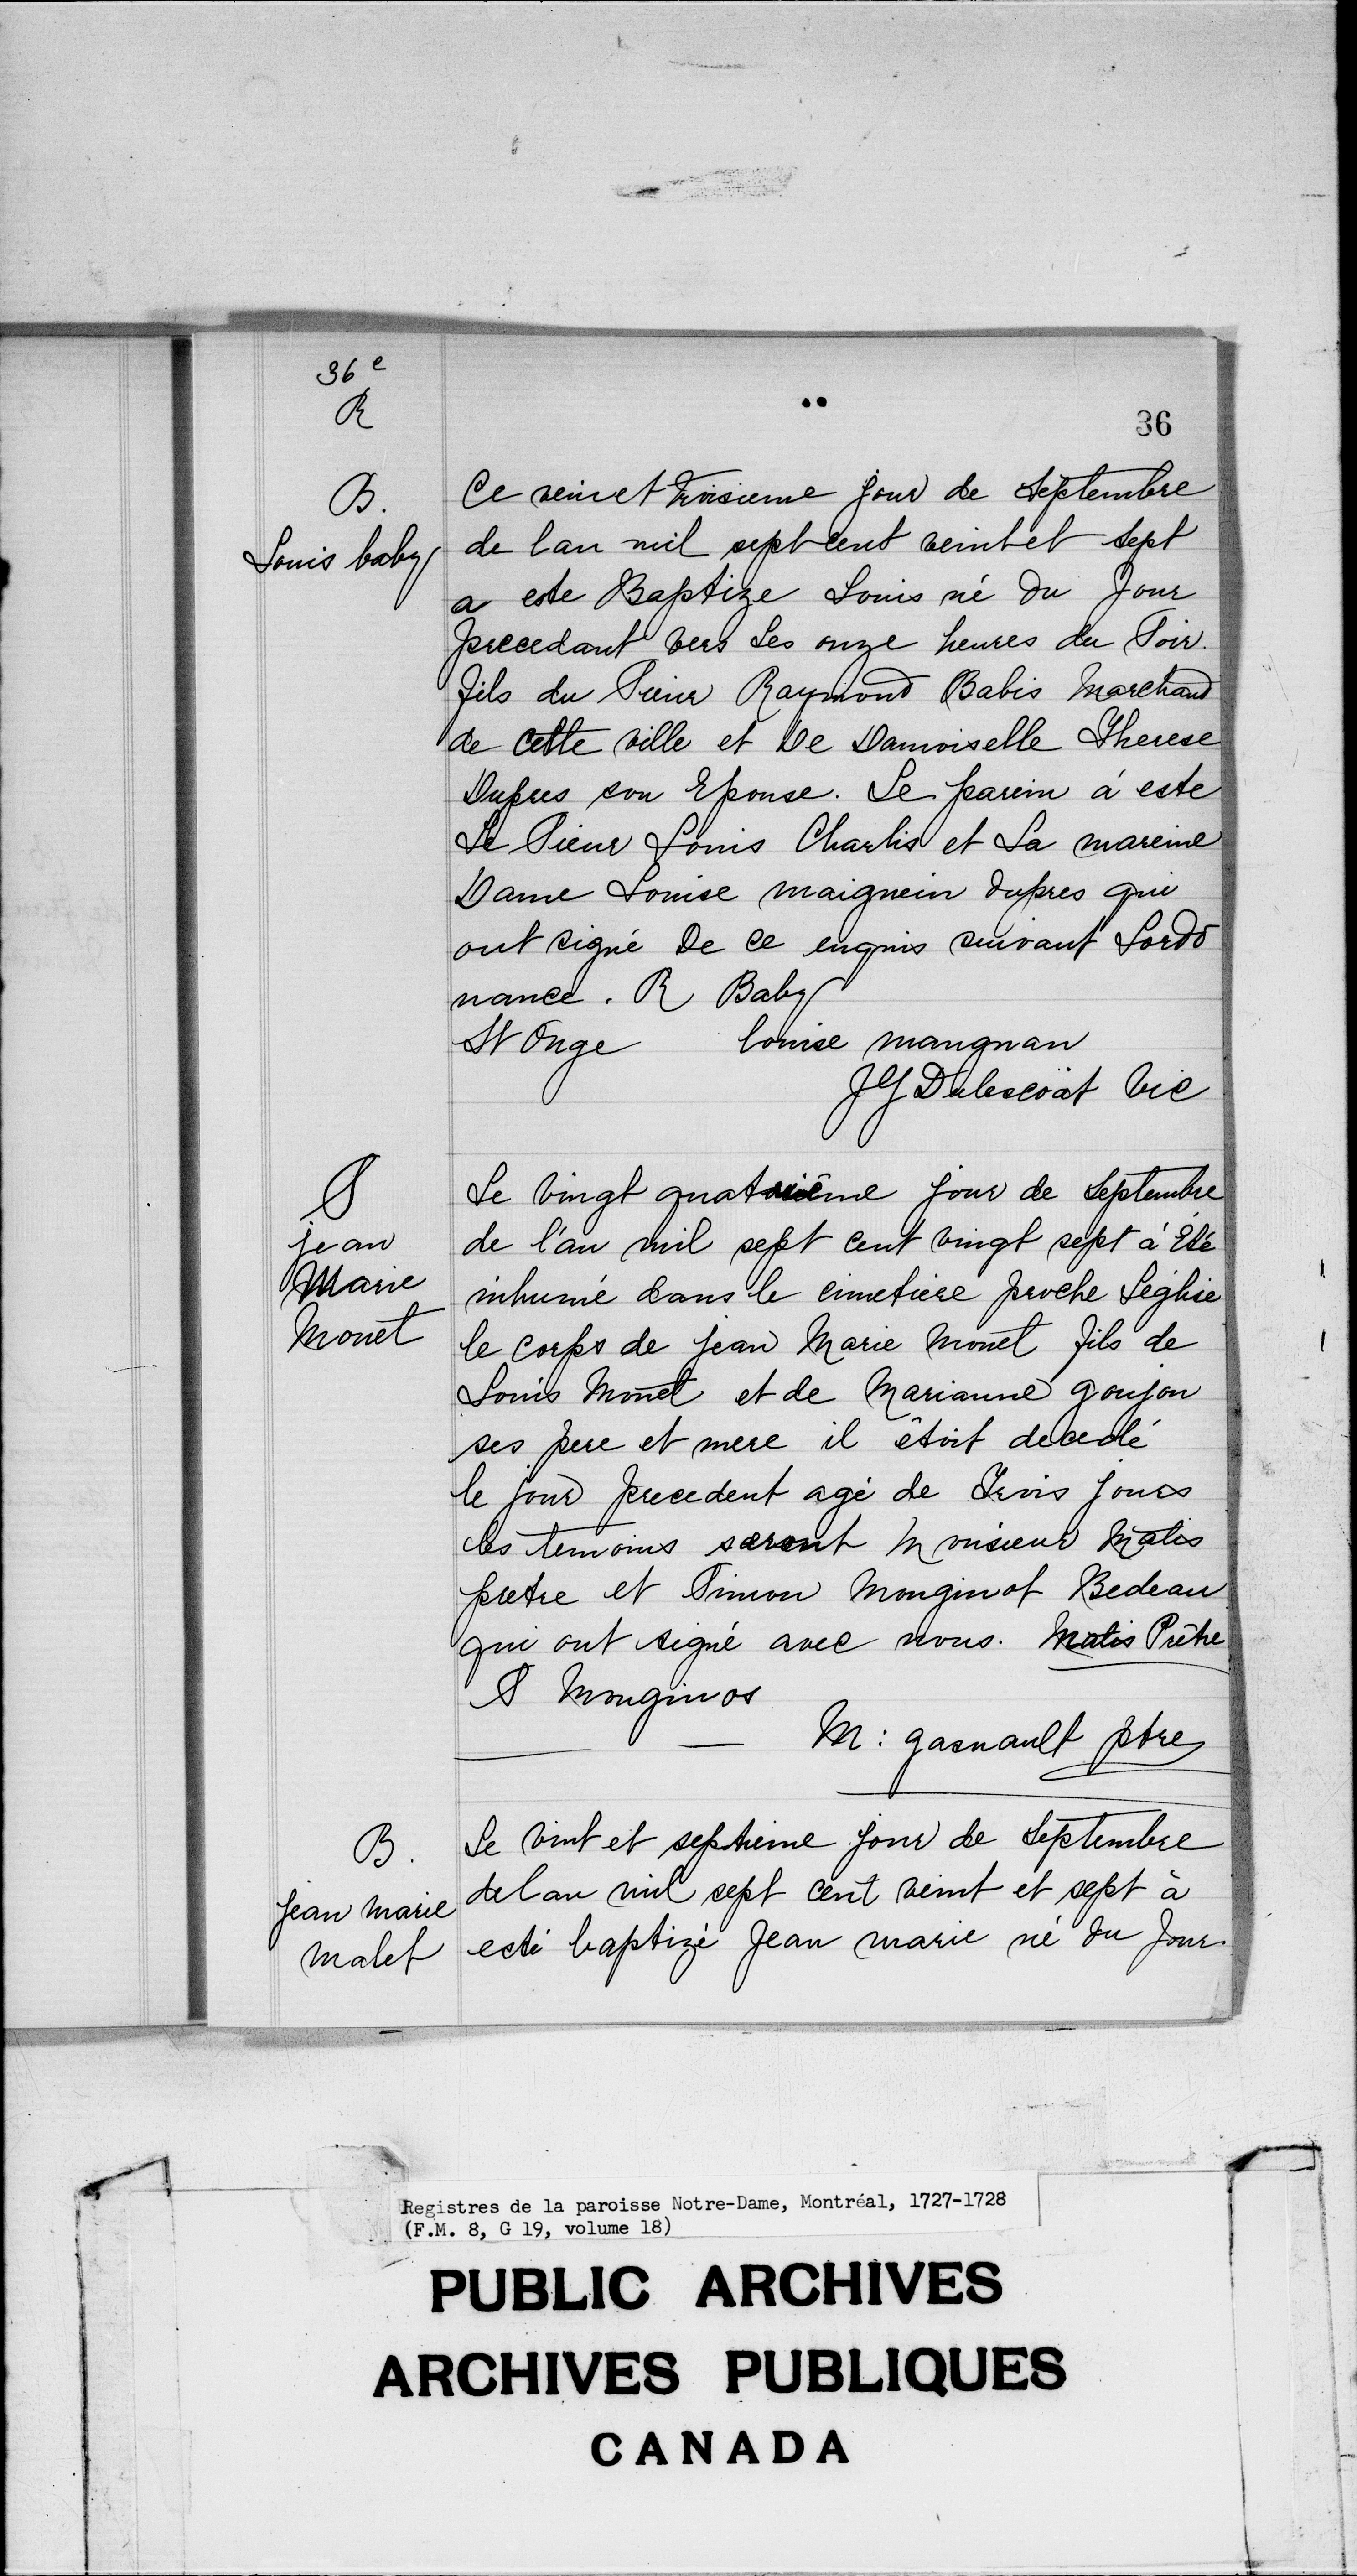 36e
R
36
B.
Louis baby
Ce veincet troisieme jour de Septembre
de lan mil sept cent veintet sept
a este Baptize Louis né du Jour
precedant vers les onze heures du Soir.
fils du Sieur Raymond Babis Marchand
de cette ville et De Damoiselle Therese
Dupres son Epouse. Le parein á este
Le Sieur Louis Charlis et La mareine
Dame Louise maignein dupres qui
ont signé De ce enquis suivant Lordo
nance. R Baby
St Onge louise mangnan
JG Dulescöat Vic
S
jean
Marie
Monet
Le vingt quatrième jour de Septembre
de l'an mil sept cent vingt sept á Eté
inhumé dans le cimetiere proche Léglise
le corps de jean Marie Monet fils de
Louis Monet et de Marianne goujon
ses pere et mere il êtoit decedé
le jour precedent agé de Trois jours
les temoins seront Monsieur Matis
pretre et Simon Monginot Bedeau
qui ont signé avec nous. Matis Prêtre
S Monginos
M: gasnault ptre
B.
Jean marie
malet
Le vint et septieme jour de Septembre
delan mil sept cent veint et sept à
esté baptizé Jean marie né du Jour
Registres de la paroisse Notre-Dame, Montréal, 1727-1728
(F.M. 8, G 19, volume 18)
PUBLIC ARCHIVES
ARCHIVES PUBLIQUES
CANADA